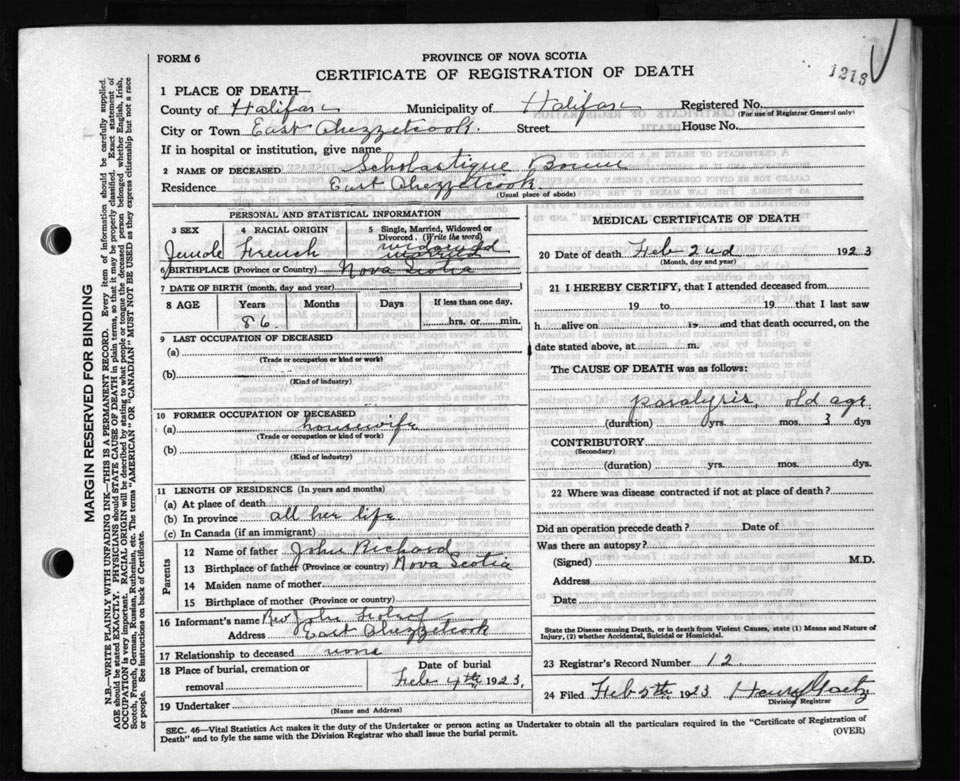 FORM 6
PROVINCE OF NOVA SCOTIA
CERTIFICATE OF REGISTRATION OF DEATH
1213
1 PLACE OF DEATH—
County of Halifax Municipality of Halifax Registered No.
(For use of Registrar General only)
City or Town East Chezzetcook. Street House No.
If in hospital or institution, give name
2 NAME OF DECEASED Scholastique
Residence East Chezzetcook.
(Usual place of abode)
PERSONAL AND STATISTICAL INFORMATION
3 SEX 4 RACIAL ORIGIN 5 Single, Married, Widowed or Divorced. (Write the word)
Female French widowed married
6 BIRTHPLACE (Province or Country) Nova Scotia
7 DATE OF BIRTH (month, day and year)
8 AGE Years Months Days If less than one day,
86 hrs. or min.
9 LAST OCCUPATION OF DECEASED
(a)
(Trade or occupation or kind of work)
(b)
(Kind of industry)
10 FORMER OCCUPATION OF DECEASED
(a) housewife
(Trade or occupation or kind of work)
(b)
(Kind of industry)
11 LENGTH OF RESIDENCE (In years and months)
(a) At place of death
(b) In province all her life
(c) In Canada (if an immigrant)
Parents
12 Name of father John Richard
13 Birthplace of father (Province or country) Nova Scotia
14 Maiden name of mother
15 Birthplace of mother (Province or country)
16 Informant's name Rev John
Address East Chezzetcook
17 Relationship to deceased none
18 Place of burial, cremation or removal Date of burial
Feb 4th 1923.
19 Undertaker
(Name and Address)
MEDICAL CERTIFICATE OF DEATH
20 Date of death Feb 2nd 1923
(Month, day and year)
21 I HEREBY CERTIFY, that I attended deceased from
19 to 19 that I last saw
h alive on 19 and that death occurred, on
date stated above, at m.
The CAUSE OF DEATH was as follows:
paralysis, old age
(duration) yrs. mos. 3 dys
CONTRIBUTORY
(Secondary)
(duration) yrs. mos. dys.
22 Where was disease contracted if not at place of death?
Did an operation precede death? Date of
Was there an autopsy?
(Signed) M.D.
Address
Date
State the Disease causing Death, or in death from Violent Causes, state (1) Means and Nature of
Injury, (2) whether Accidental, Suicidal or Homicidal.
23 Registrar's Record Number 12
24 Filed Feb 5th 1923 Henry
Division Registrar
SEC. 46—Vital Statistics Act makes it the duty of the Undertaker or person acting as Undertaker to obtain all the particulars required in the "Certificate of Registration of
Death" and to fyle the same with the Division Registrar who shall issue the burial permit.
(OVER)
MARGIN RESERVED FOR BINDING
N.B.—WRITE PLAINLY WITH UNFADING INK—THIS IS A PERMANENT RECORD. Every item of information should be carefully supplied.
AGE should be stated EXACTLY. PHYSICIANS should STATE CAUSE OF DEATH in plain terms, so that it may be properly classified. Exact statement of
OCCUPATION is very important. RACIAL ORIGIN will be described by stating to what people or tongue the deceased person belonged whether English, Irish,
Scotch, French, German, Russian, Ruthenian, etc. The terms "AMERICAN" OR "CANADIAN" MUST NOT BE USED as they express citizenship but not a race
or people. See instructions on back of Certificate.